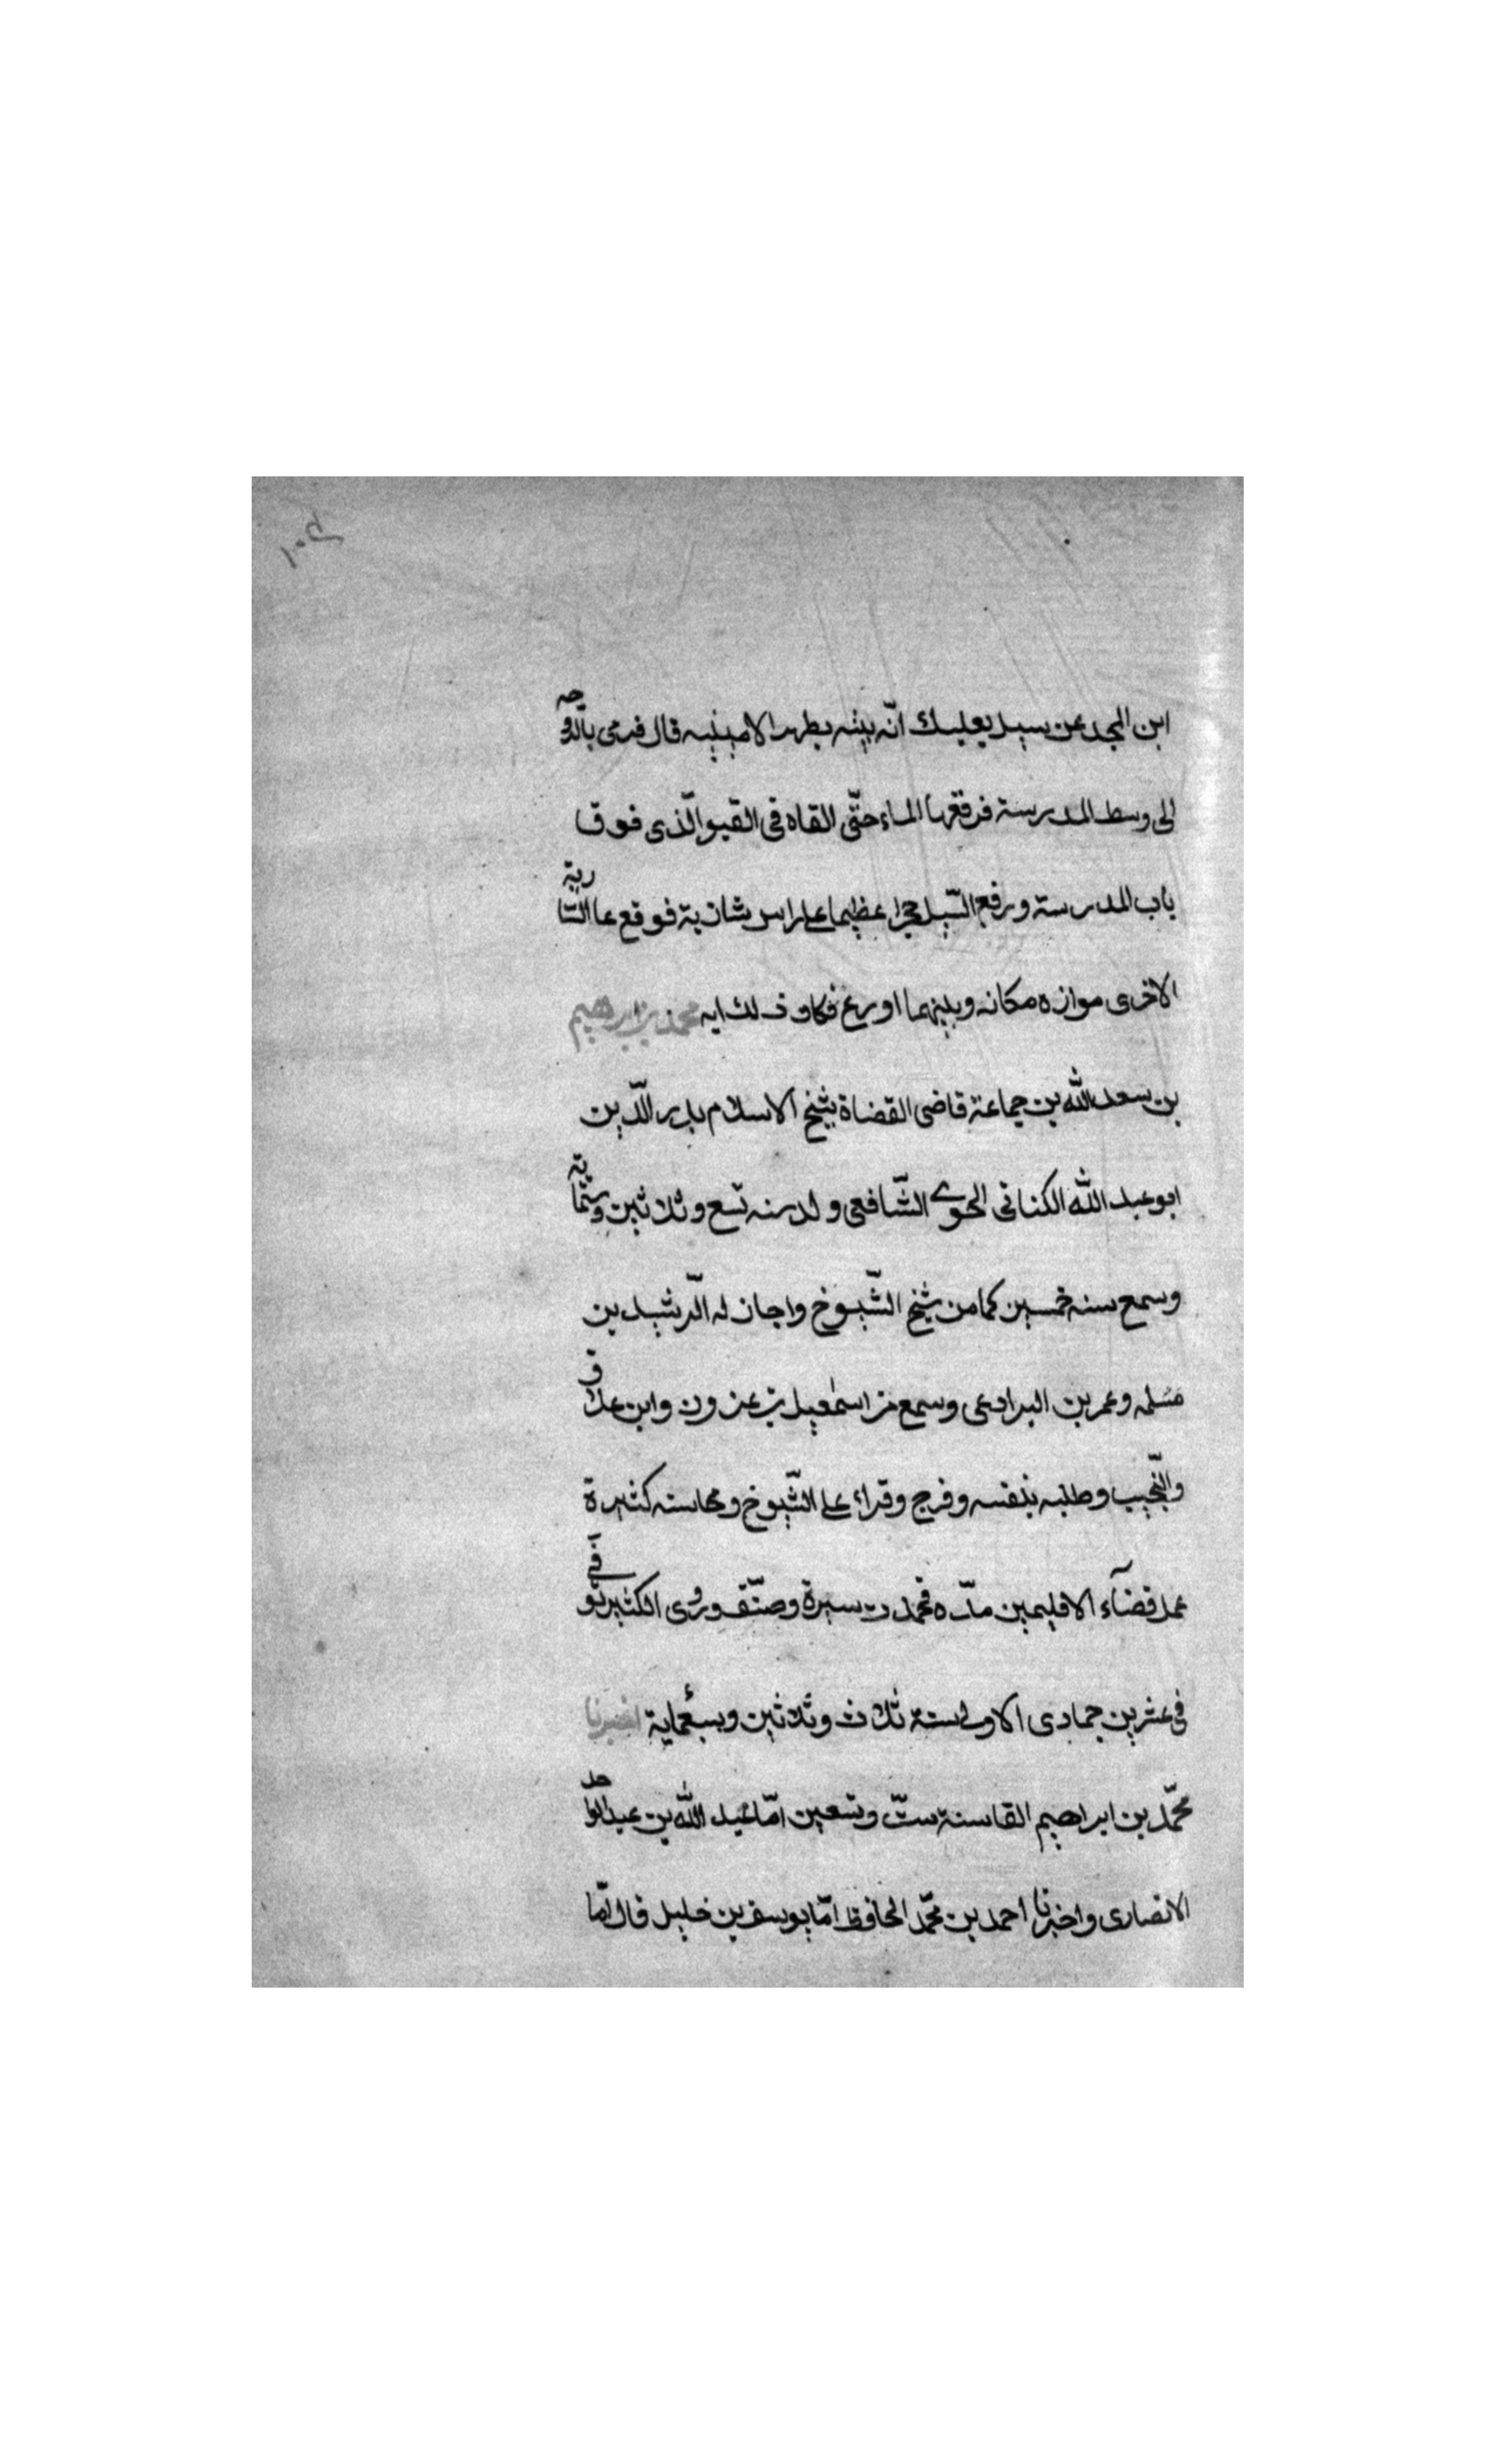 ابن المجد عن سيل بعلبك انّه بيته بظهر الامينيه قال فرمى بالدوحه
الى وسط المدرسة فرفعها الماء حتّى القاه فى القبو الّذى فوق
باب المدرسة ورفع السّيل حجرا عظيما على راس شاذبة فوقع عا الشاربة
الاخرى موازه مكانه وبينهما اورع فكان ذلك ايه محمد بن ابرهيم
بن سعد الله بن جماعة قاضى القضاة شيخ الاسلام بدر الدّين
ابو عبد الله الكنانى الحموى الشّافعى ولد سنه تسع وثلاثين وستماية
وسمع سنه خمسين كما من شيخ الشّيوخ واجاز له الرّشيد بن
مسلمه وعمر بن البرادعى وسمع من اسمٰعيل بن عزون وابن علاق
والنّجيب وطلبه بنفسه وفرج وقراء على الشّيوخ ومحاسنه كثيرة
عمل قضآء الاقليمين مدّه فحمدت سيرة وصنّف وروى الكثير توفى
فى عشرين جمادى الاولى سنة ثلاث وثلاثين وسبعماية اخبرنا
محمّد بن ابراهيم القا سنة ستّ وتسعين امّا عبد الله بن عبد الواحد
الانصارى واخبرنا احمد بن محمّد الحافظ امّا يوسف بن خليل قال امّا